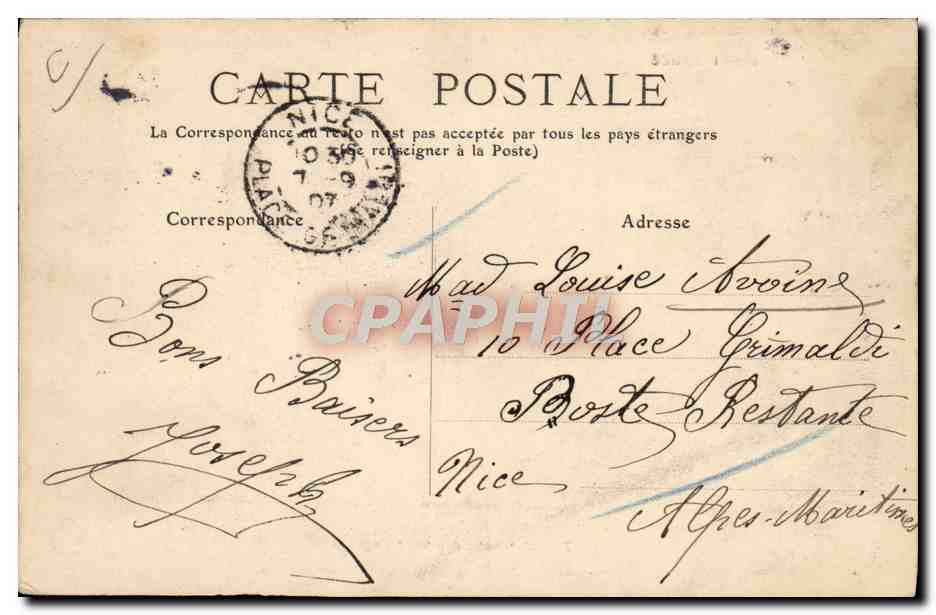 CARTE POSTALE
La Correspondance au recto n'est pas acceptée par tous les pays étrangers
(se renseigner à la Poste)
NICE
10 30
7 - 9
07
PLACE GRIMALDI
Correspondance
Adresse
Bons
Baisers
Joseph
Mad Louise Avoine
10 Place Grimaldi
Poste Restante
Nice
Alpes-Maritimes
CPAPHIL